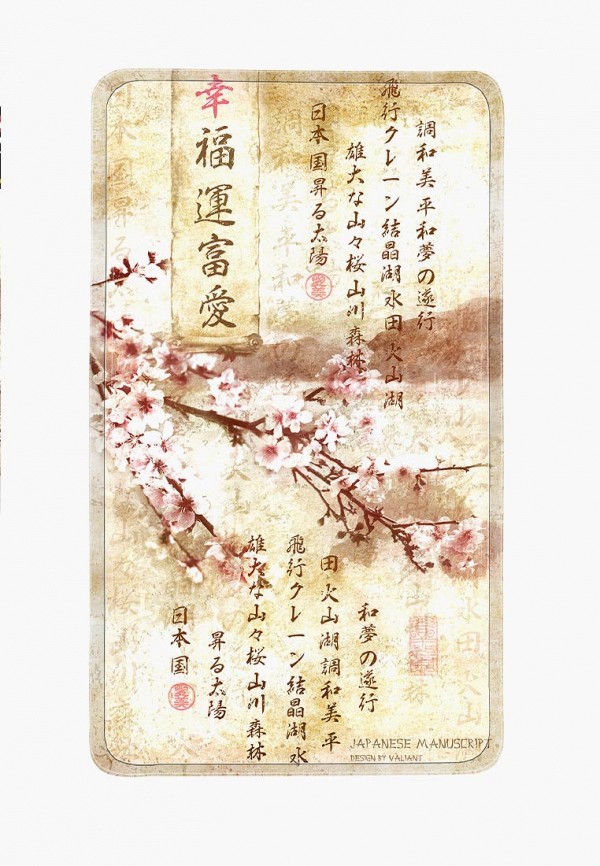 調和美平和夢の遂行
飛行クレーン結晶湖水田火山湖
雄大な山々桜山川森林
日本国昇る太陽
幸福運富愛
和夢の遂行
田火山湖調和美平
飛行クレーン結晶湖水
雄大な山々桜山川森林
昇る太陽
日本国
JAPANESE MANUSCRIPT
DESIGN BY VALIANT